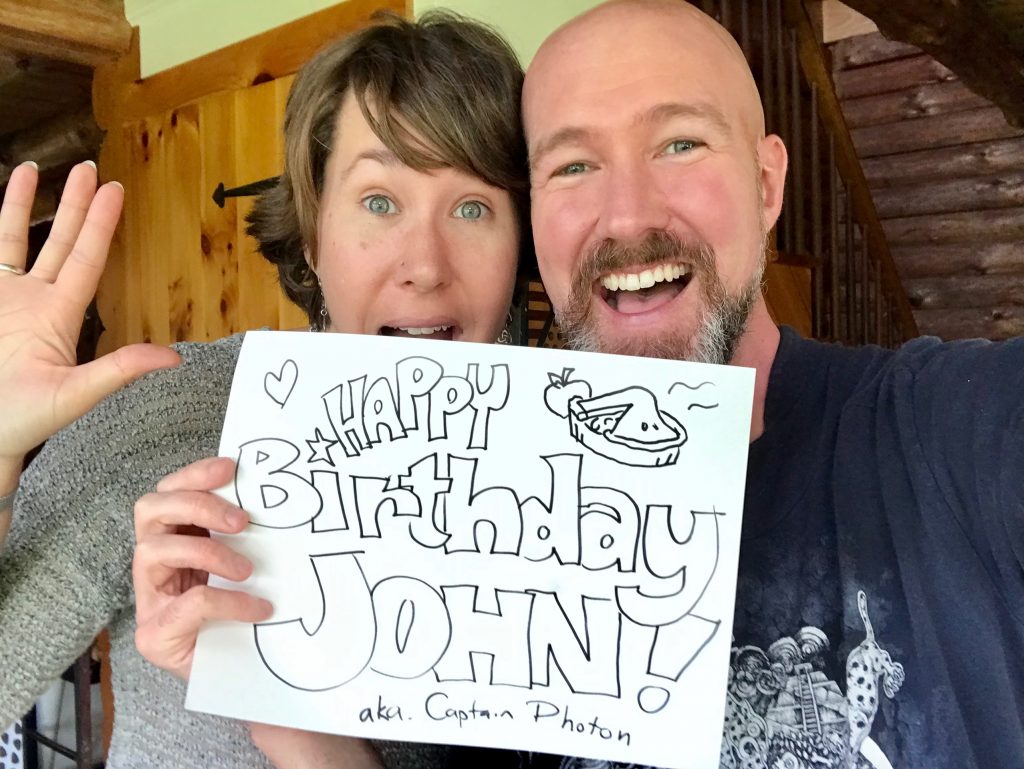 HAPPY
Birthday
JOHN!
aka. Captain Photon